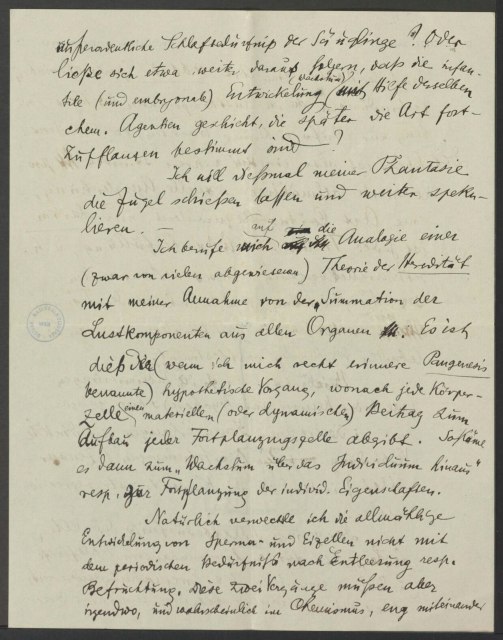 außerordentliche Schlafbedürfniß der Säuglinge? Oder
ließe sich etwa weiter daraus folgern, daß die infan-
tile (und embryonale) Entwickelung (Wachstum) mit Hilfe derselben
chem. Agentien geschieht, die später die Art fort-
zupflanzen bestimmt sind?
Ich will diesmal meiner Phantasie
die Zügel schießen lassen und weiter speku-
lieren. —
Ich berufe mich auf die Analogie einer
(zwar von vielen abgewiesenen) Theorie der Heredität
mit meiner Annahme von der „Summation der
Lustkomponenten aus allen Organen. Es ist
dieß der (wenn ich mich recht erinnere Pangenesis
benannte) hypothetische Vorgang, wonach jede Körper-
zelle einen materiellen (oder dynamischen) Beitrag zum
Aufbau jeder Fortplanzungszelle abgibt. So käme
es dann zum „Wachstum über das Individuum hinaus"
resp. zur Fortplanzung der individ. Eigenschaften.
Natürlich verwechle ich die allmählige
Entwickelung von Sperma- und Eizellen nicht mit
dem periodischen Bedürfniß nach Entleerung resp.
Befruchtung. Diese zwei Vorgänge müßen aber
irgendwo, und wahrscheinlich im Chemismus, eng miteinander